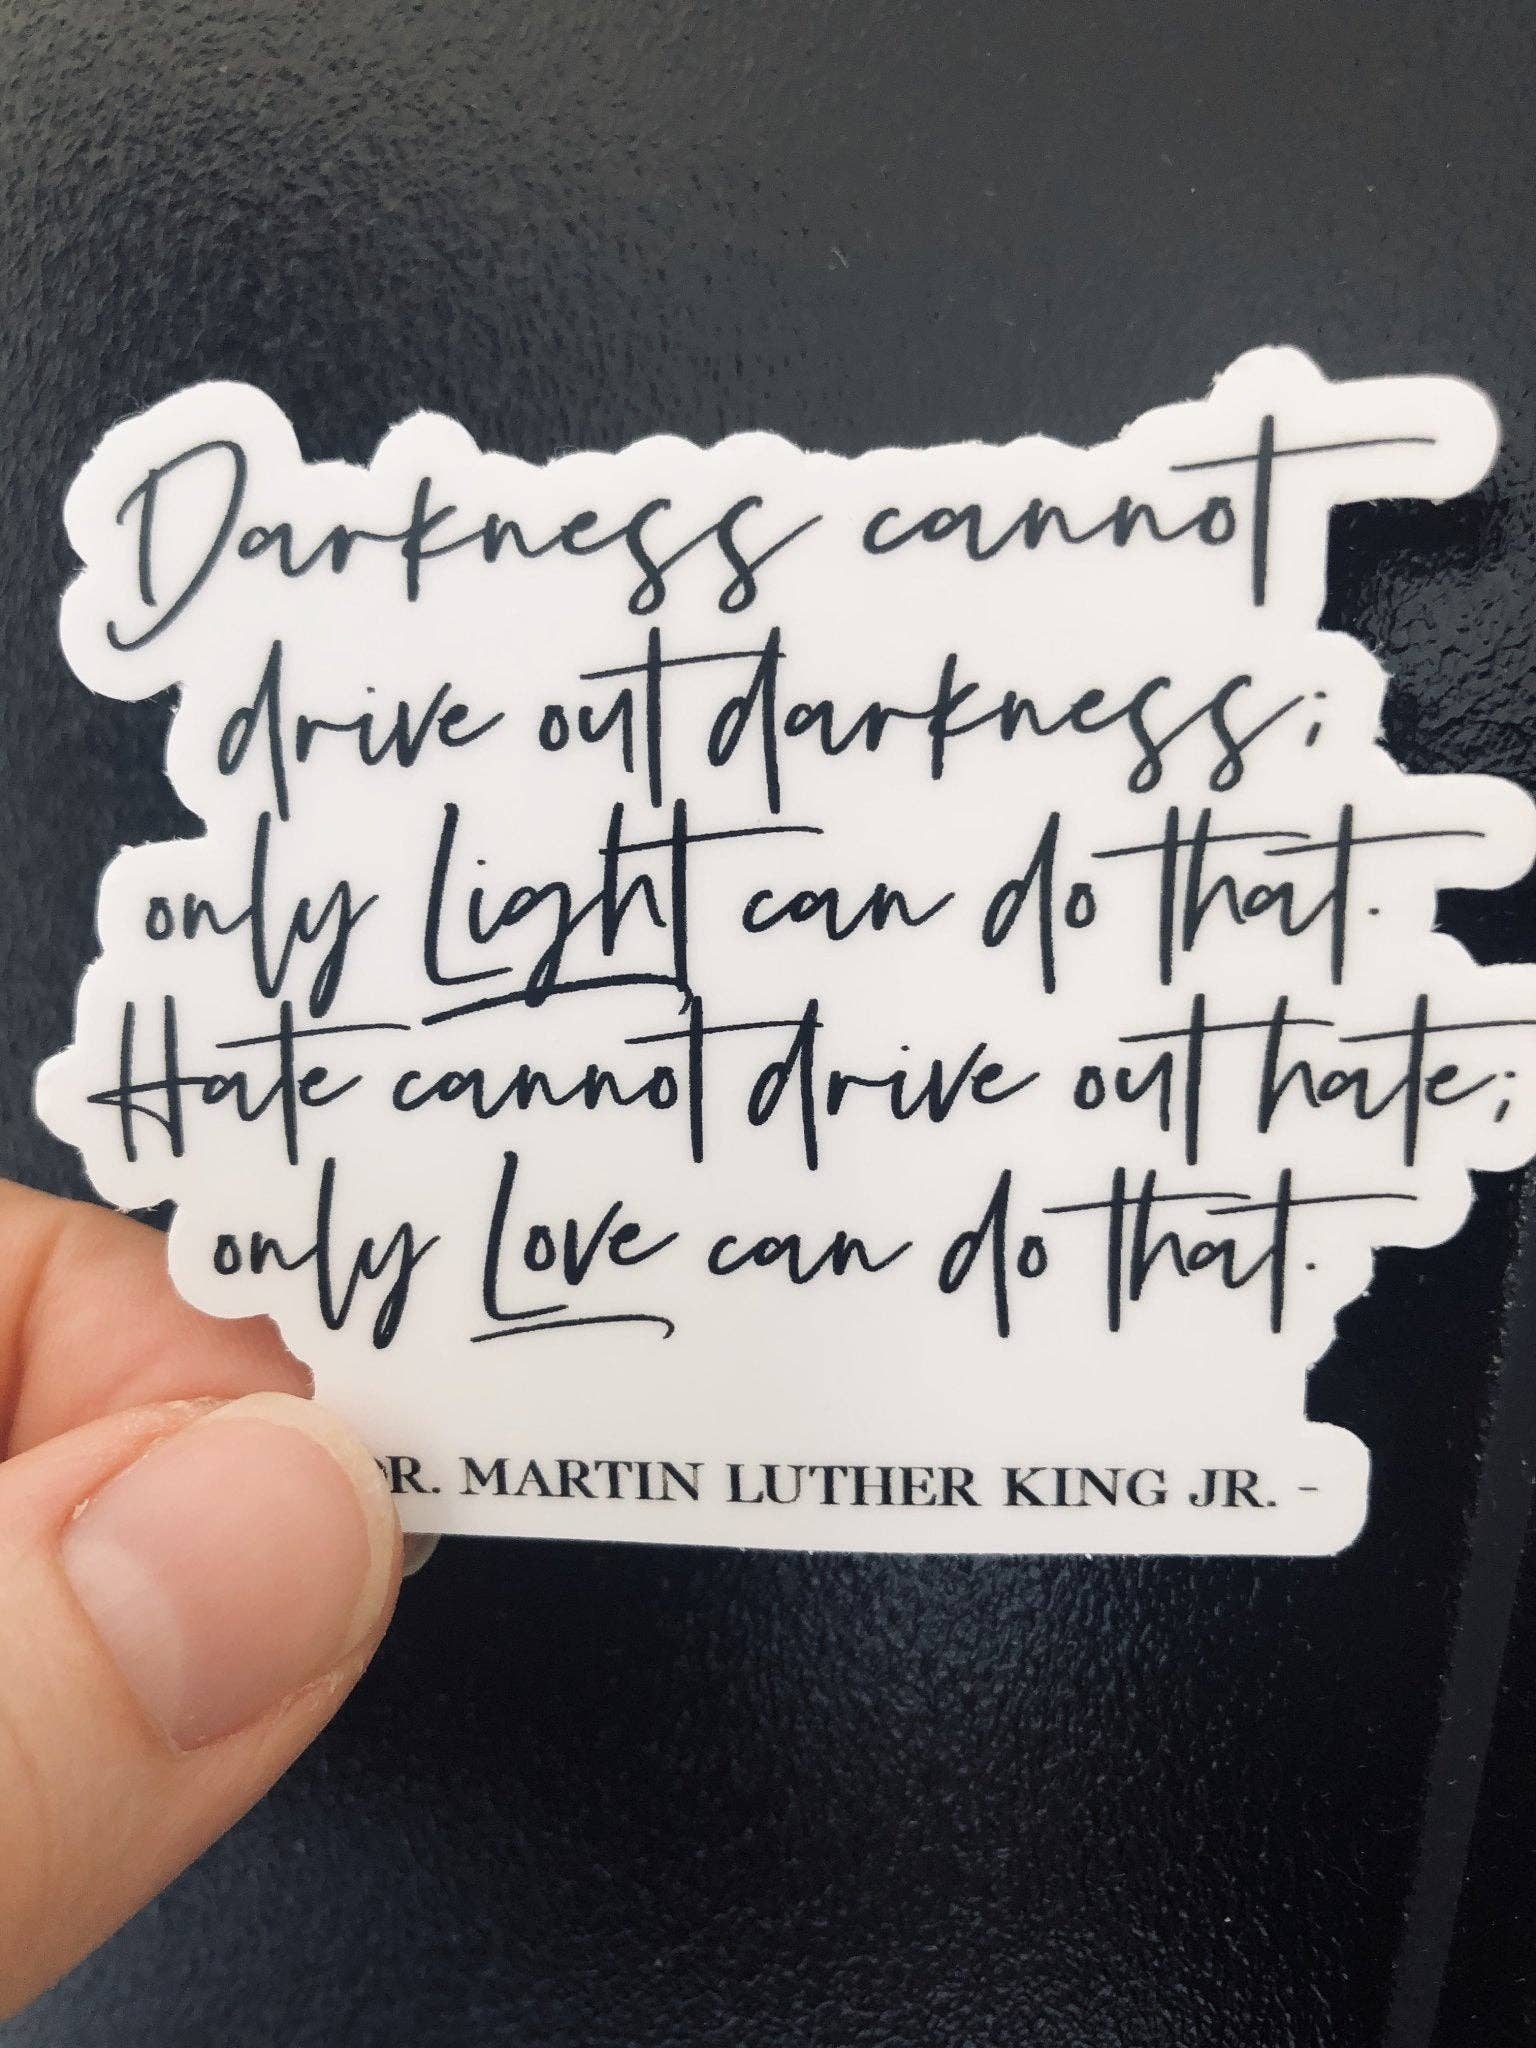 Darkness cannot
drive out darkness;
only Light can do that.
Hate cannot drive out hate;
only Love can do that.
DR. MARTIN LUTHER KING JR. -